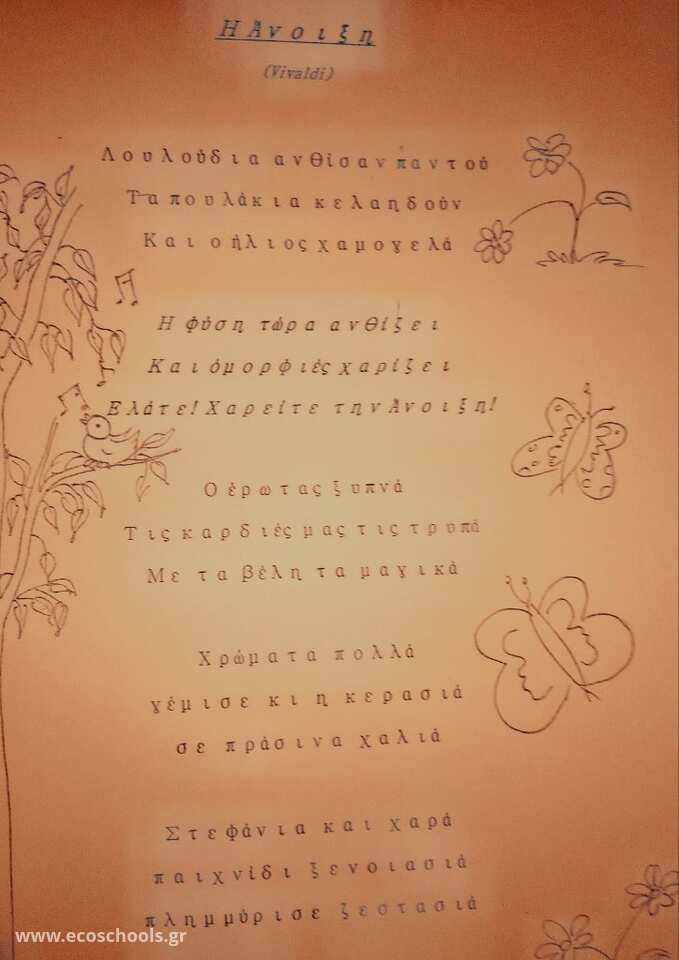 Η Άνοιξη
(Vivaldi)
Λουλούδια ανθίσαν παντού
Τα πουλάκια κελαηδούν
Και ο ήλιος χαμογελά
Η φύση τώρα ανθίζει
Και όμορφιές χαρίζει
Ελάτε! Χαρείτε την Άνοιξη!
Ο έρωτας ξυπνά
Τις καρδιές μας τις τρυπά
Με τα βέλη τα μαγικά
Χρώματα πολλά
γέμισε κι η κερασιά
σε πράσινα χαλιά
Στεφάνια και χαρά
παιχνίδι ξενοιασιά
πλημμύρισε ζεστασιά
www.ecoschools.gr